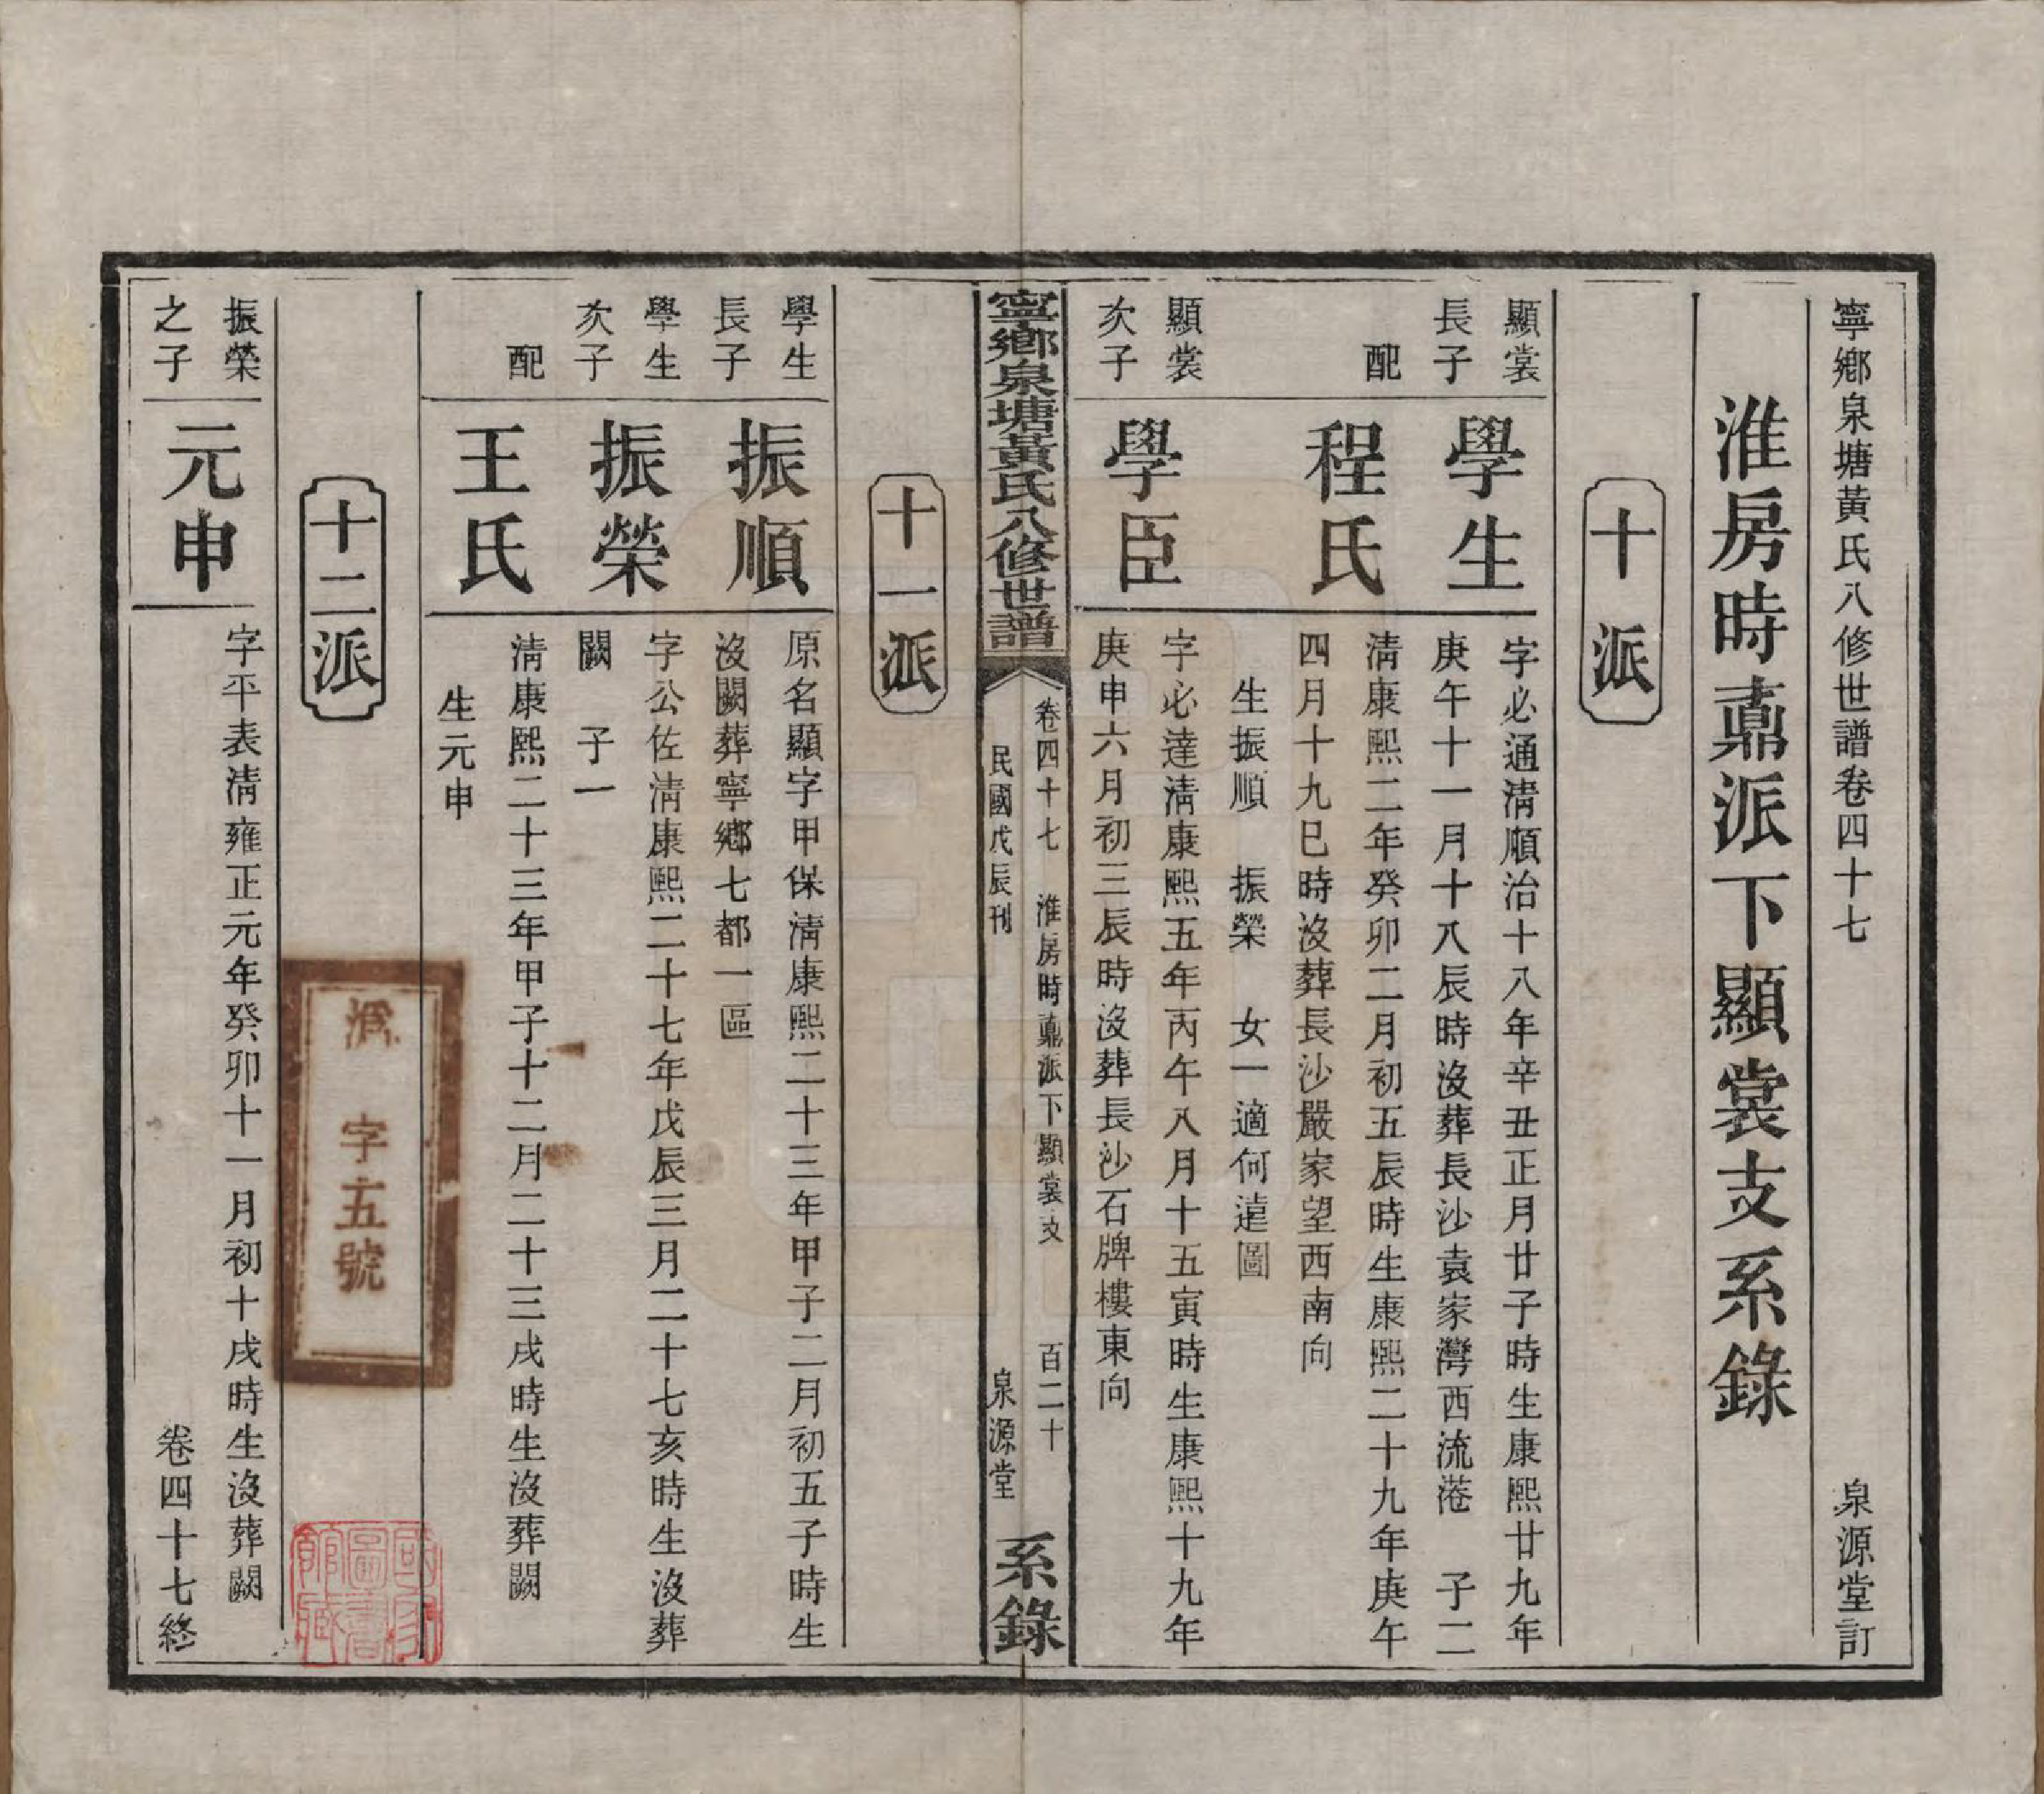 寧鄉泉塘黃氏八修世譜卷四十七 泉源堂訂
淮房時鼒派下顯裳支系錄
十派
顯裳長子
學生
字必通清順治十八年辛丑正月廿子時生康熙廿九年
庚午十一月十八辰時沒葬長沙袁家灣西流港 子二
配
程氏
清康熙二年癸卯二月初五辰時生康熙二十九年庚午
四月十九巳時沒葬長沙嚴家望西南向
生振順 振榮 女一適何遠圖
顯裳次子
學臣
字必達清康熙五年丙午八月十五寅時生康熙十九年
庚申六月初三辰時沒葬長沙石牌樓東向
寧鄉泉塘黃氏八修世譜
卷四十七 淮房時鼒派下顯裳支 百二十
民國戊辰刊 泉源堂
系錄
十一派
學生長子
振順
原名顯字甲保清康熙二十三年甲子二月初五子時生
沒闕葬寧鄉七都一區
學生次子
振榮
字公佐清康熙二十七年戊辰三月二十七亥時生沒葬
闕 子一
配
王氏
清康熙二十三年甲子十二月二十三戌時生沒葬闕
生元申
十二派
振榮之子
元申
字平表清雍正元年癸卯十一月初十戌時生沒葬闕
卷四十七終
字五號
國家圖書館藏